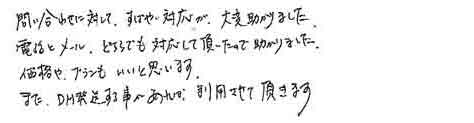 問い合わせに対して、すばやい対応が、大変助かりました。
電話とメール、どちらでも対応して頂いたので助かりました。
価格や、プランもいいと思います。
また、DM発送する事があれば、利用させて頂きます